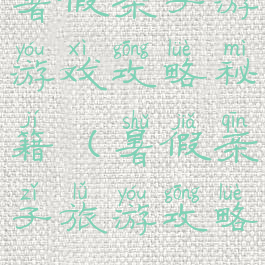 暑假亲子游
yóu xì gōng lüè mì
游戏攻略秘
jí shǔ jiǎ qīn
籍(暑假亲
zǐ lǚ yóu gōng lüè
子旅游攻略